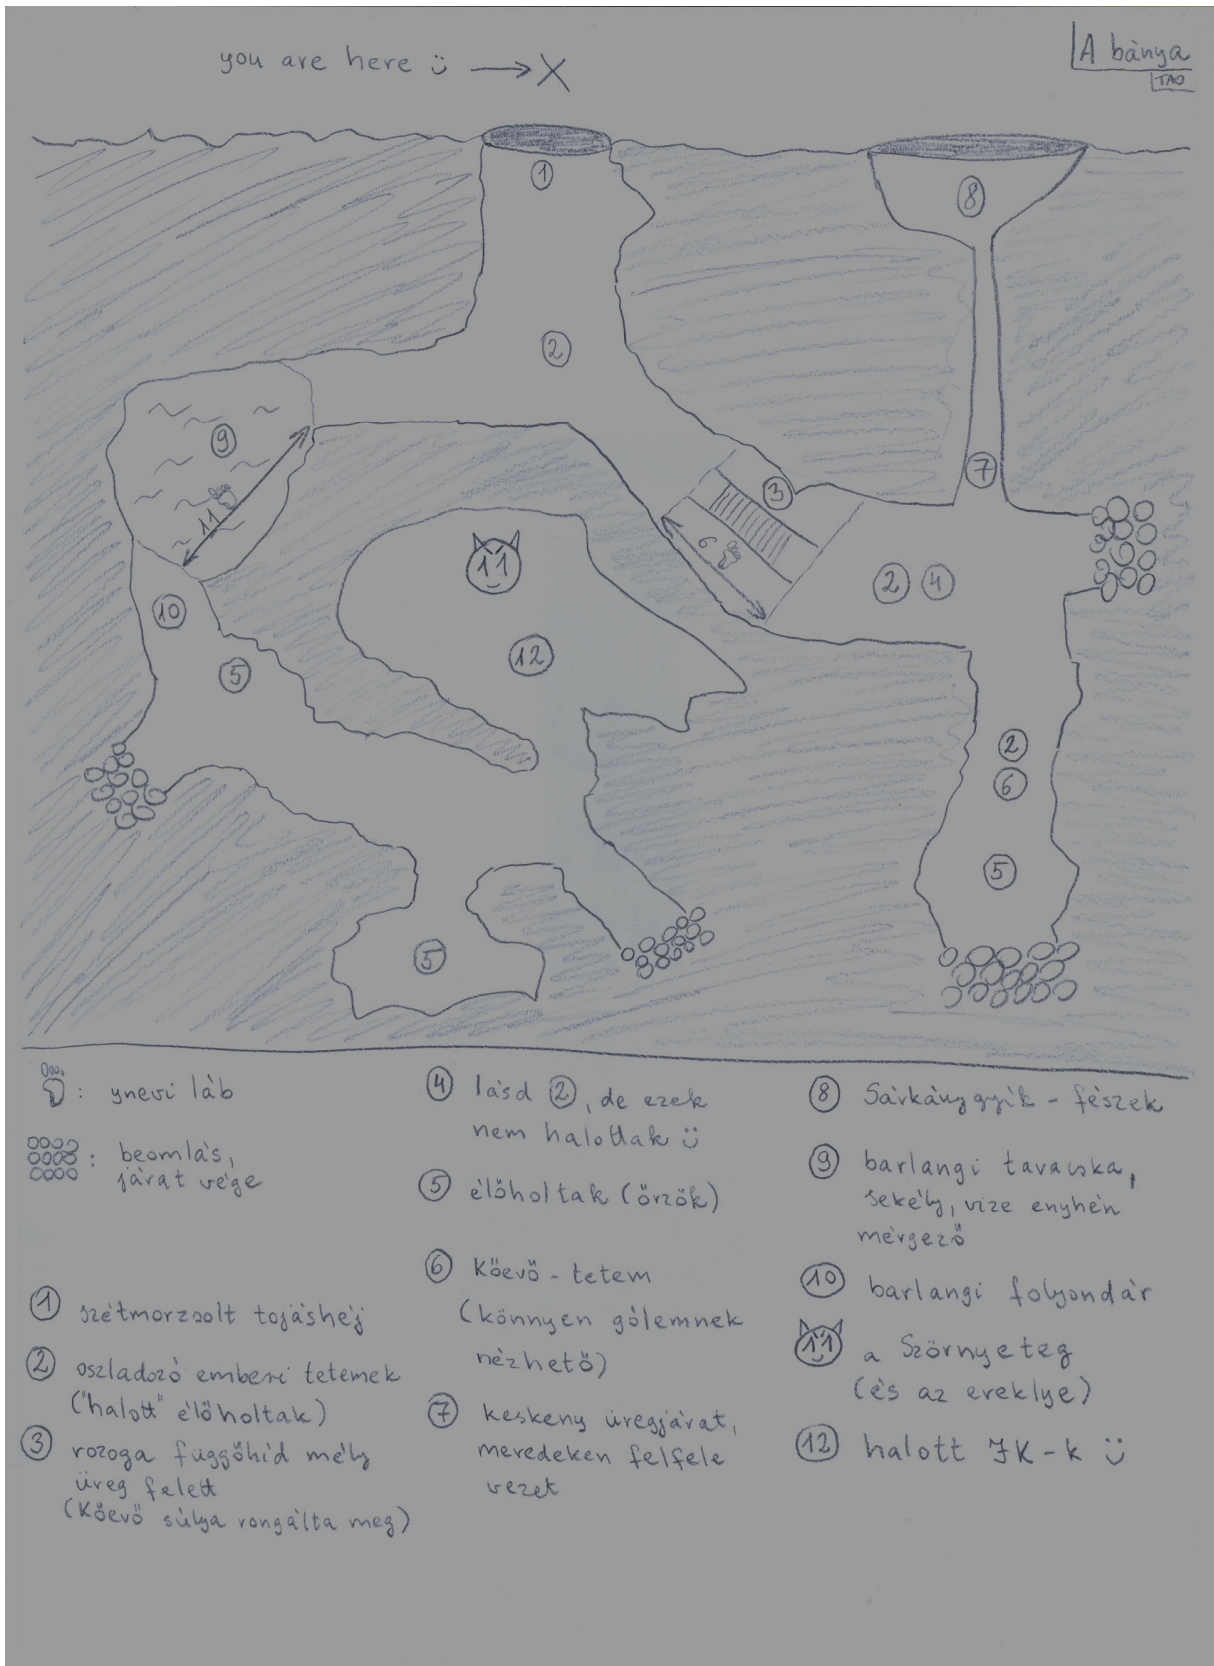 you are here ü → X
A bánya
TAO
1
8
2
9
3
7
11
6
11
2 4
10
12
5
2
6
5
5
: ynevi láb
: beomlás,
járat vége
1 szétmorzsolt tojáshéj
2 oszladozó emberi tetemek
("halott" élőholtak)
3 rozoga függőhíd mély
üreg felett
(Kőevő súlya rongálta meg)
4 lásd 2, de ezek
nem halottak ü
5 élőholtak (őrzők)
6 Kőevő - tetem
(könnyen gólemnek
nézhető)
7 keskeny üregjárat,
meredeken felfele
vezet
8 Sárkánygyík - fészek
9 barlangi tavacska,
sekély, vize enyhén
mérgező
10 barlangi folyondár
11 a Szörnyeteg
(és az ereklye)
12 halott JK-k ü